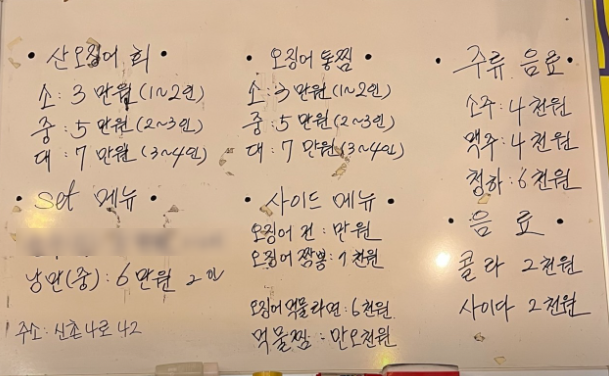 • 산 오징어 회 •
소: 3 만원 (1~2인)
중: 5 만원 (2~3인)
대: 7 만원 (3~4인)
• Set 메뉴 •
낭만(중): 6 만원 2 인
주소: 신촌 4로 42
• 오징어 통찜 •
소: 3 만원 (1~2인)
중: 5 만원 (2~3인)
대: 7 만원 (3~4인)
• 사이드 메뉴 •
오징어 전: 만원
오징어 짬뽕: 9 천원
오징어 먹물라면: 6천원
먹물찜: 만오천원
• 주류 음료 •
소주: 4 천원
맥주: 4 천원
청하: 6 천원
• 음 료 •
콜라 2 천원
사이다 2 천원